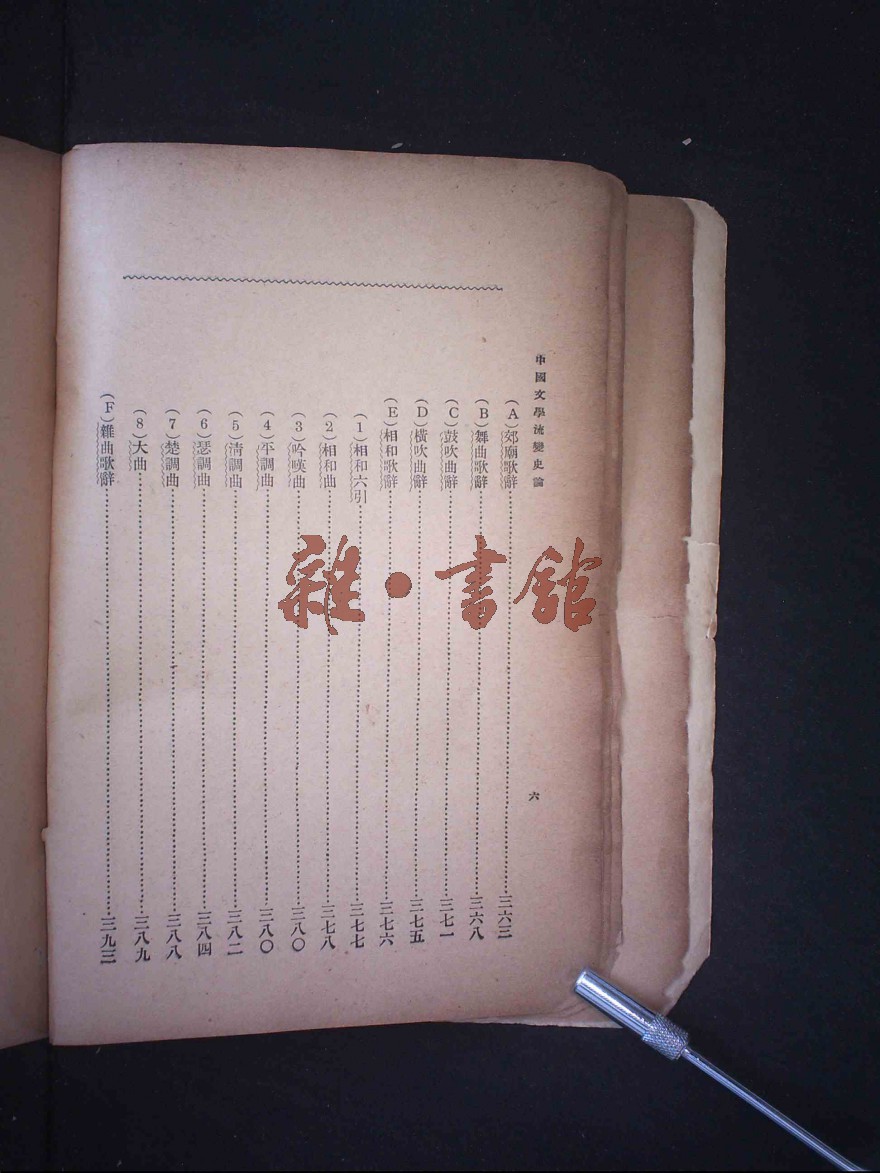 中國文學流變史論
六
(A)郊廟歌辭…………三六三
(B)舞曲歌辭…………三六八
(C)鼓吹曲辭…………三七一
(D)橫吹曲辭…………三七五
(E)相和歌辭…………三七六
(1)相和六引…………三七七
(2)相和曲…………三七八
(3)吟嘆曲…………三八〇
(4)平調曲…………三八〇
(5)清調曲…………三八二
(6)瑟調曲…………三八四
(7)楚調曲…………三八八
(8)大曲…………三八九
(F)雜曲歌辭…………三九三
雜·書館